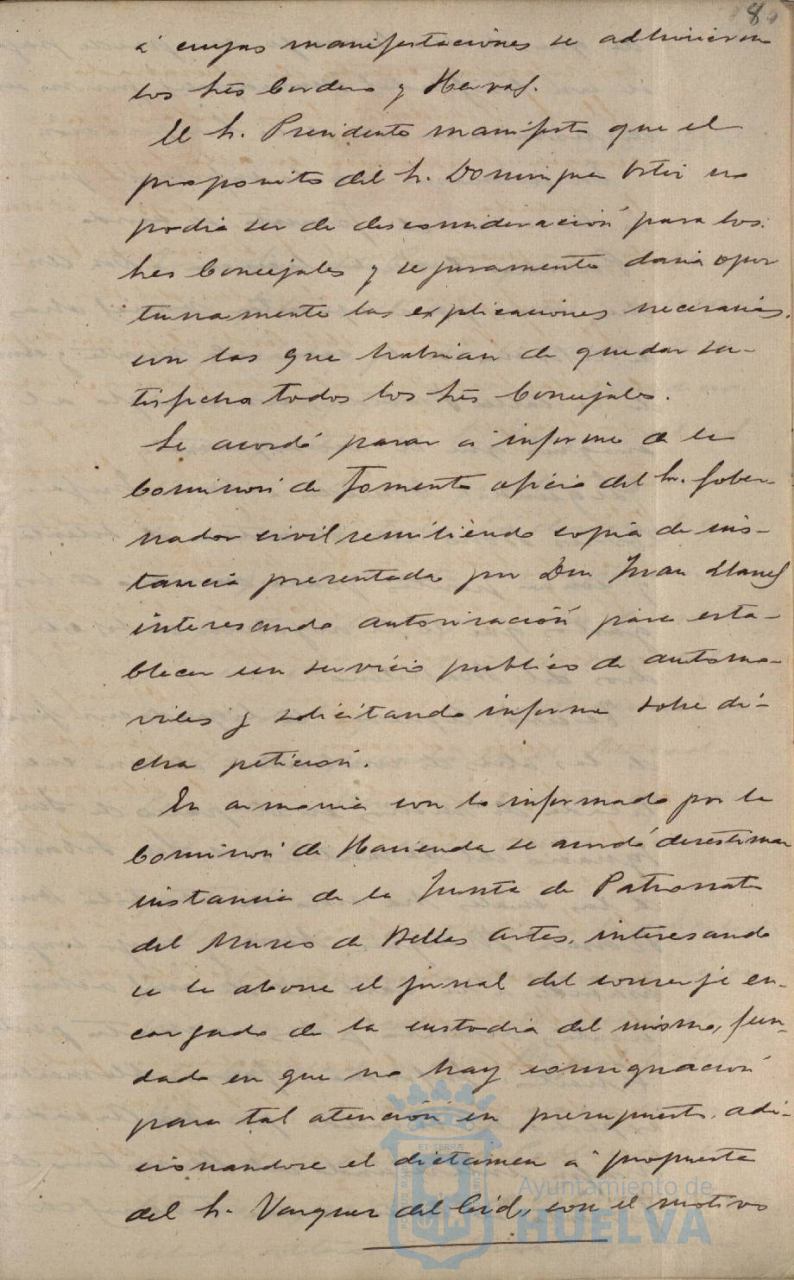 8
á cuyas manifestaciones se adhirieron
los Sres Cordero y Hervas.
El Sr. Presidente manifestó que el
proposito del Sr. Dominguez Ortiz no
podia ser de desconsideración para los
Sres Concejales y seguramente daria opor
tunamente las explicaciones necesarias,
con las que habrian de quedar sa-
tisfecho todos los Sres Concejales.
Se acordó pasar á informe de la
Comision de Fomento oficio del Sr. Gober-
nador civil remitiendo copia de ins-
tancia presentada por Don Juan
interesando autorización para esta-
blecer un servicio publico de automo-
viles y solicitando informe sobre di-
cha petición.
En armonia con lo informado por la
Comision de Hacienda se acordó desestimar
instancia de la Junta de Patronato
del Museo de Bellas Artes, interesando
se le abone el jornal del conserje en-
cargado de la custodia del mismo, fun-
dado en que no hay consignación
para tal atención en presupuesto, adi-
cionandose el dictamen á propuesta
del Sr. Vazquez del Cid, con el motivo
Ayuntamiento de
HUELVA